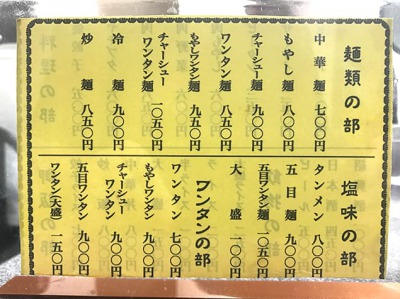 麺類の部
中華麺 七〇〇円
もやし麺 八〇〇円
チャーシュー麺 九〇〇円
ワンタン麺 八五〇円
もやしワンタン麺 九五〇円
チャーシューワンタン麺 一〇五〇円
冷麺 九〇〇円
炒麺 八五〇円
塩味の部
タンメン 八〇〇円
五目麺 九〇〇円
五目ワンタン麺 一〇五〇円
大盛 一〇〇円
ワンタンの部
ワンタン 七〇〇円
もやしワンタン 八〇〇円
チャーシューワンタン 九〇〇円
五目ワンタン 九〇〇円
ワンタン(大盛) 一五〇円